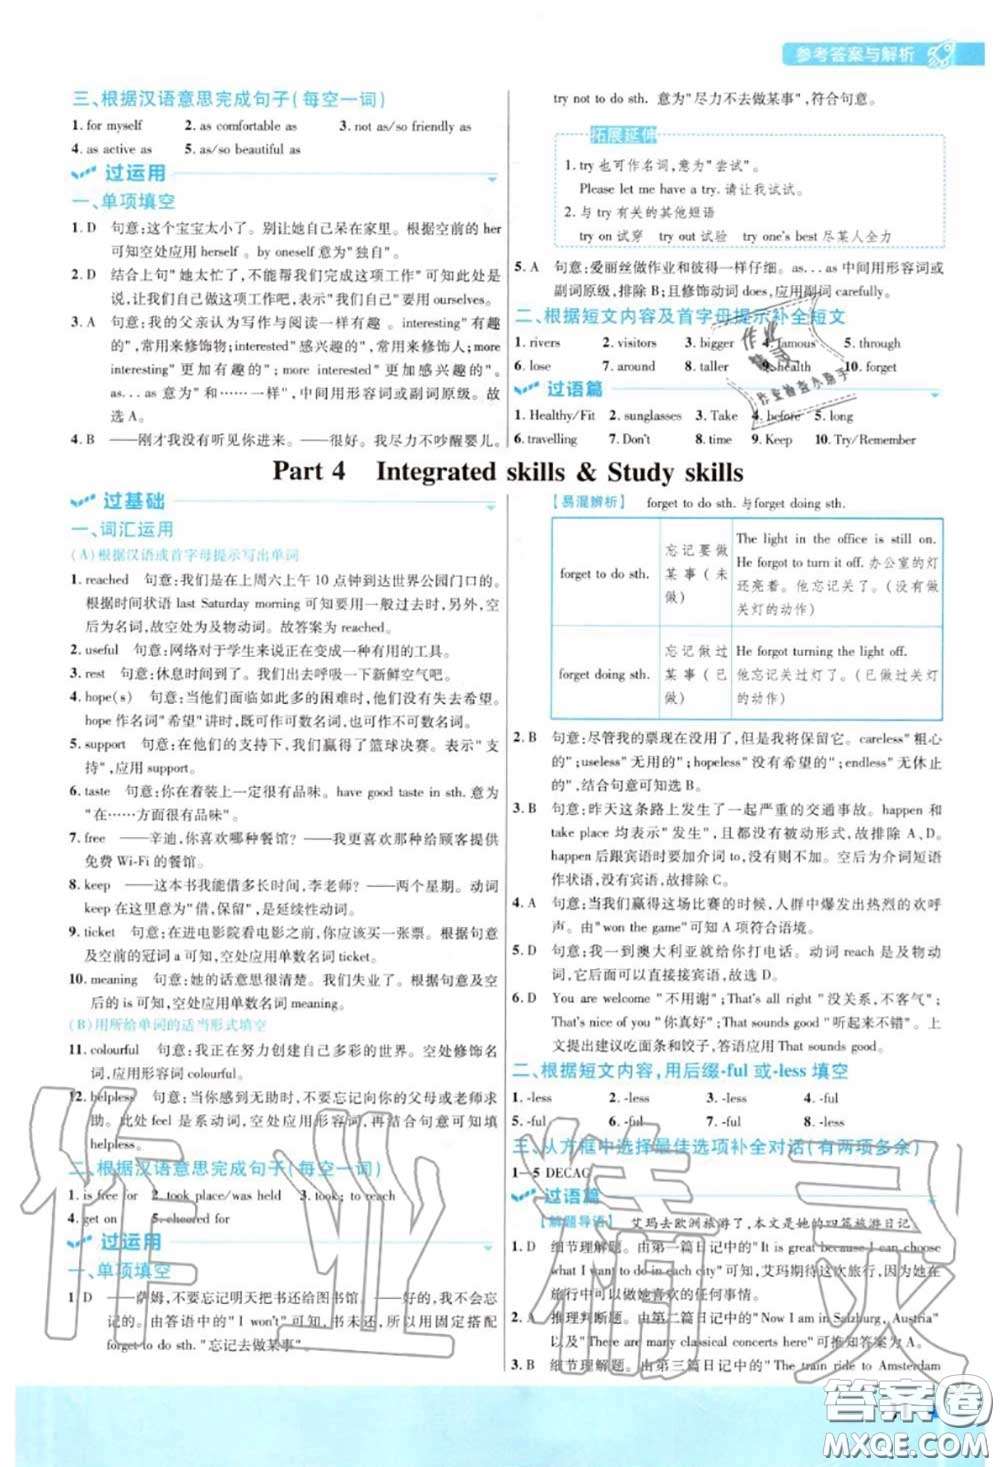 参考答案与解析
三、根据汉语意思完成句子(每空一词)
1. for myself 2. as comfortable as 3. not as/so friendly as
4. as active as 5. as/so beautiful as
过运用
一、单项填空
1. D 句意:这个宝宝太小了。别让她自己呆在家里。根据空前的 her
可知空处应用 herself 。by oneself 意为"独自"。
2. D 结合上句"她太忙了,不能帮我们完成这项工作"可知此处应是
说,让我们自己做这项工作,表示"我们自己"要用 ourselves。
3. A 句意:我的父亲认为写作与阅读一样有趣 。interesting"有趣的
",常用来修饰物;interested"感兴趣的",常用来修饰人;more
interesting"更加有趣的";more interested"更感兴趣的"。
as...as 意为"和……一样",中间用形容词或副词原级。故
选 A。
4. B ——刚才我没有听见你进来。——很好。我尽力不吵醒婴儿。
try not to do sth. 意为"尽力不去做某事",符合句意。
拓展延伸
1. try 也可作名词,意为"尝试"。
Please let me have a try. 请让我试试。
2. 与 try 有关的其他短语
try on 试穿 try out 试验 try one's best 尽某人全力
5. A 句意:爱丽丝做作业和彼得一样仔细。as...as 中间用形容词或
副词原级,排除 B;且修饰动词 does,应用副词 carefully。
二、根据短文内容及首字母提示补全短文
1. rivers 2. visitors 3. bigger 4. famous 5. through
6. lose 7. around 8. taller 9. health 10. forget
过语篇
1. Healthy/Fit 2. sunglasses 3. Take 4. before 5. long
6. travelling 7. Don't 8. time 9. Keep 10. Try/Remember
Part 4 Integrated skills & Study skills
过基础
一、词汇运用
(A)根据汉语或首字母提示写出单词
1. reached 句意:我们是在上周六上午 10 点钟到达世界公园门口的。
根据时间状语 last Saturday morning 可知要用过去时,另外,空
后为名词,故空处为及物动词。故答案为 reached。
2. useful 句意:网络对于学生来说正在变成一种有用的工具。
3. rest 句意:休息时间到了。我们出去呼吸一下新鲜空气吧。
4. hope(s) 句意:当他们面临如此多的困难时,他们没有失去希望。
hope 作名词"希望"讲时,既可作可数名词,也可作不可数名词。
5. support 句意:在他们的支持下,我们赢得了篮球决赛。表示"支
持",应用 support。
6. taste 句意:你在着装上一定很有品味。have good taste in sth. 意为
"在……方面很有品味"。
7. free ——辛迪,你喜欢哪种餐馆? ——我更喜欢给顾客提供
免费 Wi-Fi 的餐馆。
8. keep ——这本书我能借多长时间,李老师? ——两个星期。动词
keep 在这里意为"借,保留",是延续性动词。
9. ticket 句意:在进电影院看电影之前,你应该买一张票。根据句意
及空前的冠词 a 可知,空处应用单数名词 ticket。
10. meaning 句意:她的话意思很清楚。我们失业了。根据句意及空
后的 is 可知,空处应用单数名词 meaning。
(B)用所给单词的适当形式填空
11. colourful 句意:我正在努力创建自己多彩的世界。空处修饰名
词,应用形容词 colourful。
12. helpless 句意:当你感到无助时,不要忘记向你的父母或老师求
助。此处 feel 是系动词,空处应用形容词,再结合句意可知应填
helpless。
二、根据汉语意思完成句子(每空一词)
1. is free for 2. took place/was held 3. took; to reach
4. get on 5. cheered for
过运用
一、单项填空
1. D ——萨姆,不要忘记明天把书还给图书馆。——好的,我不会忘
记的。由答语中的"I won't"可知,书未还,所以用固定搭配
forget to do sth."忘记去做某事"。
【易混辨析】 forget to do sth. 与 forget doing sth.
forget to do sth. 忘记要做某事(未做) The light in the office is still on. He forgot to turn it off. 办公室的灯还亮着。他忘记关了。(没有做关灯的动作)
forget doing sth. 忘记做过某事(已做) He forgot turning the light off. 他忘记关过灯了。(已做过关灯的动作)
2. B 句意:尽管我的票现在没用了,但我将保留它。careless"粗心
的";useless"无用的";hopeless"没有希望的";endless"无休止
的",结合句意可知选 B。
3. B 句意:昨天这条路上发生了一起严重的交通事故。happen 和
take place 均表示"发生",且都没有被动形式,故排除 A、D。
happen 后跟宾语时要加介词 to,且此处空后为介词短语
作状语,故排除 C。
4. A 句意:当我们赢得这场比赛的时候,人群中爆发出热烈的欢呼
声。由"won the game"可知 A 项符合语境。
5. D 句意:我一到澳大利亚就给你打电话。动词 reach 是及物动
词,后面应直接接宾语,故选 D。
6. D You are welcome"不用谢";That's all right"没关系,不客气";
That's nice of you"你真好";That sounds good"听起来不错"。上
文提出建议吃面条和饺子,答语应用 That sounds good。
二、根据短文内容,用后缀-ful 或-less 填空
1. -less 2. -less 3. -less 4. -ful
5. -less 6. -ful 7. -less 8. -ful
三、从方框中选择最佳选项补全对话(有两项多余)
1—5 DECAG
过语篇
【解题导语】 艾玛去欧洲旅游了,本文是她的四篇旅游日记。
1. D 细节理解题。由第一篇日记中的"It is great because I can do what I
want to do in each city"可知,艾玛期待这次旅行,因为她在
旅行中可以做她喜欢的任何事情。
2. A 推理判断题。由第二篇日记中的"Now I am in Salzburg, Austria"
以及"There are many classical concerts here"可推知答案为 A。
3. B 细节理解题。由第三篇日记中的"The train ride to Amsterdam
作业精灵
答案圈
MXQE.COM